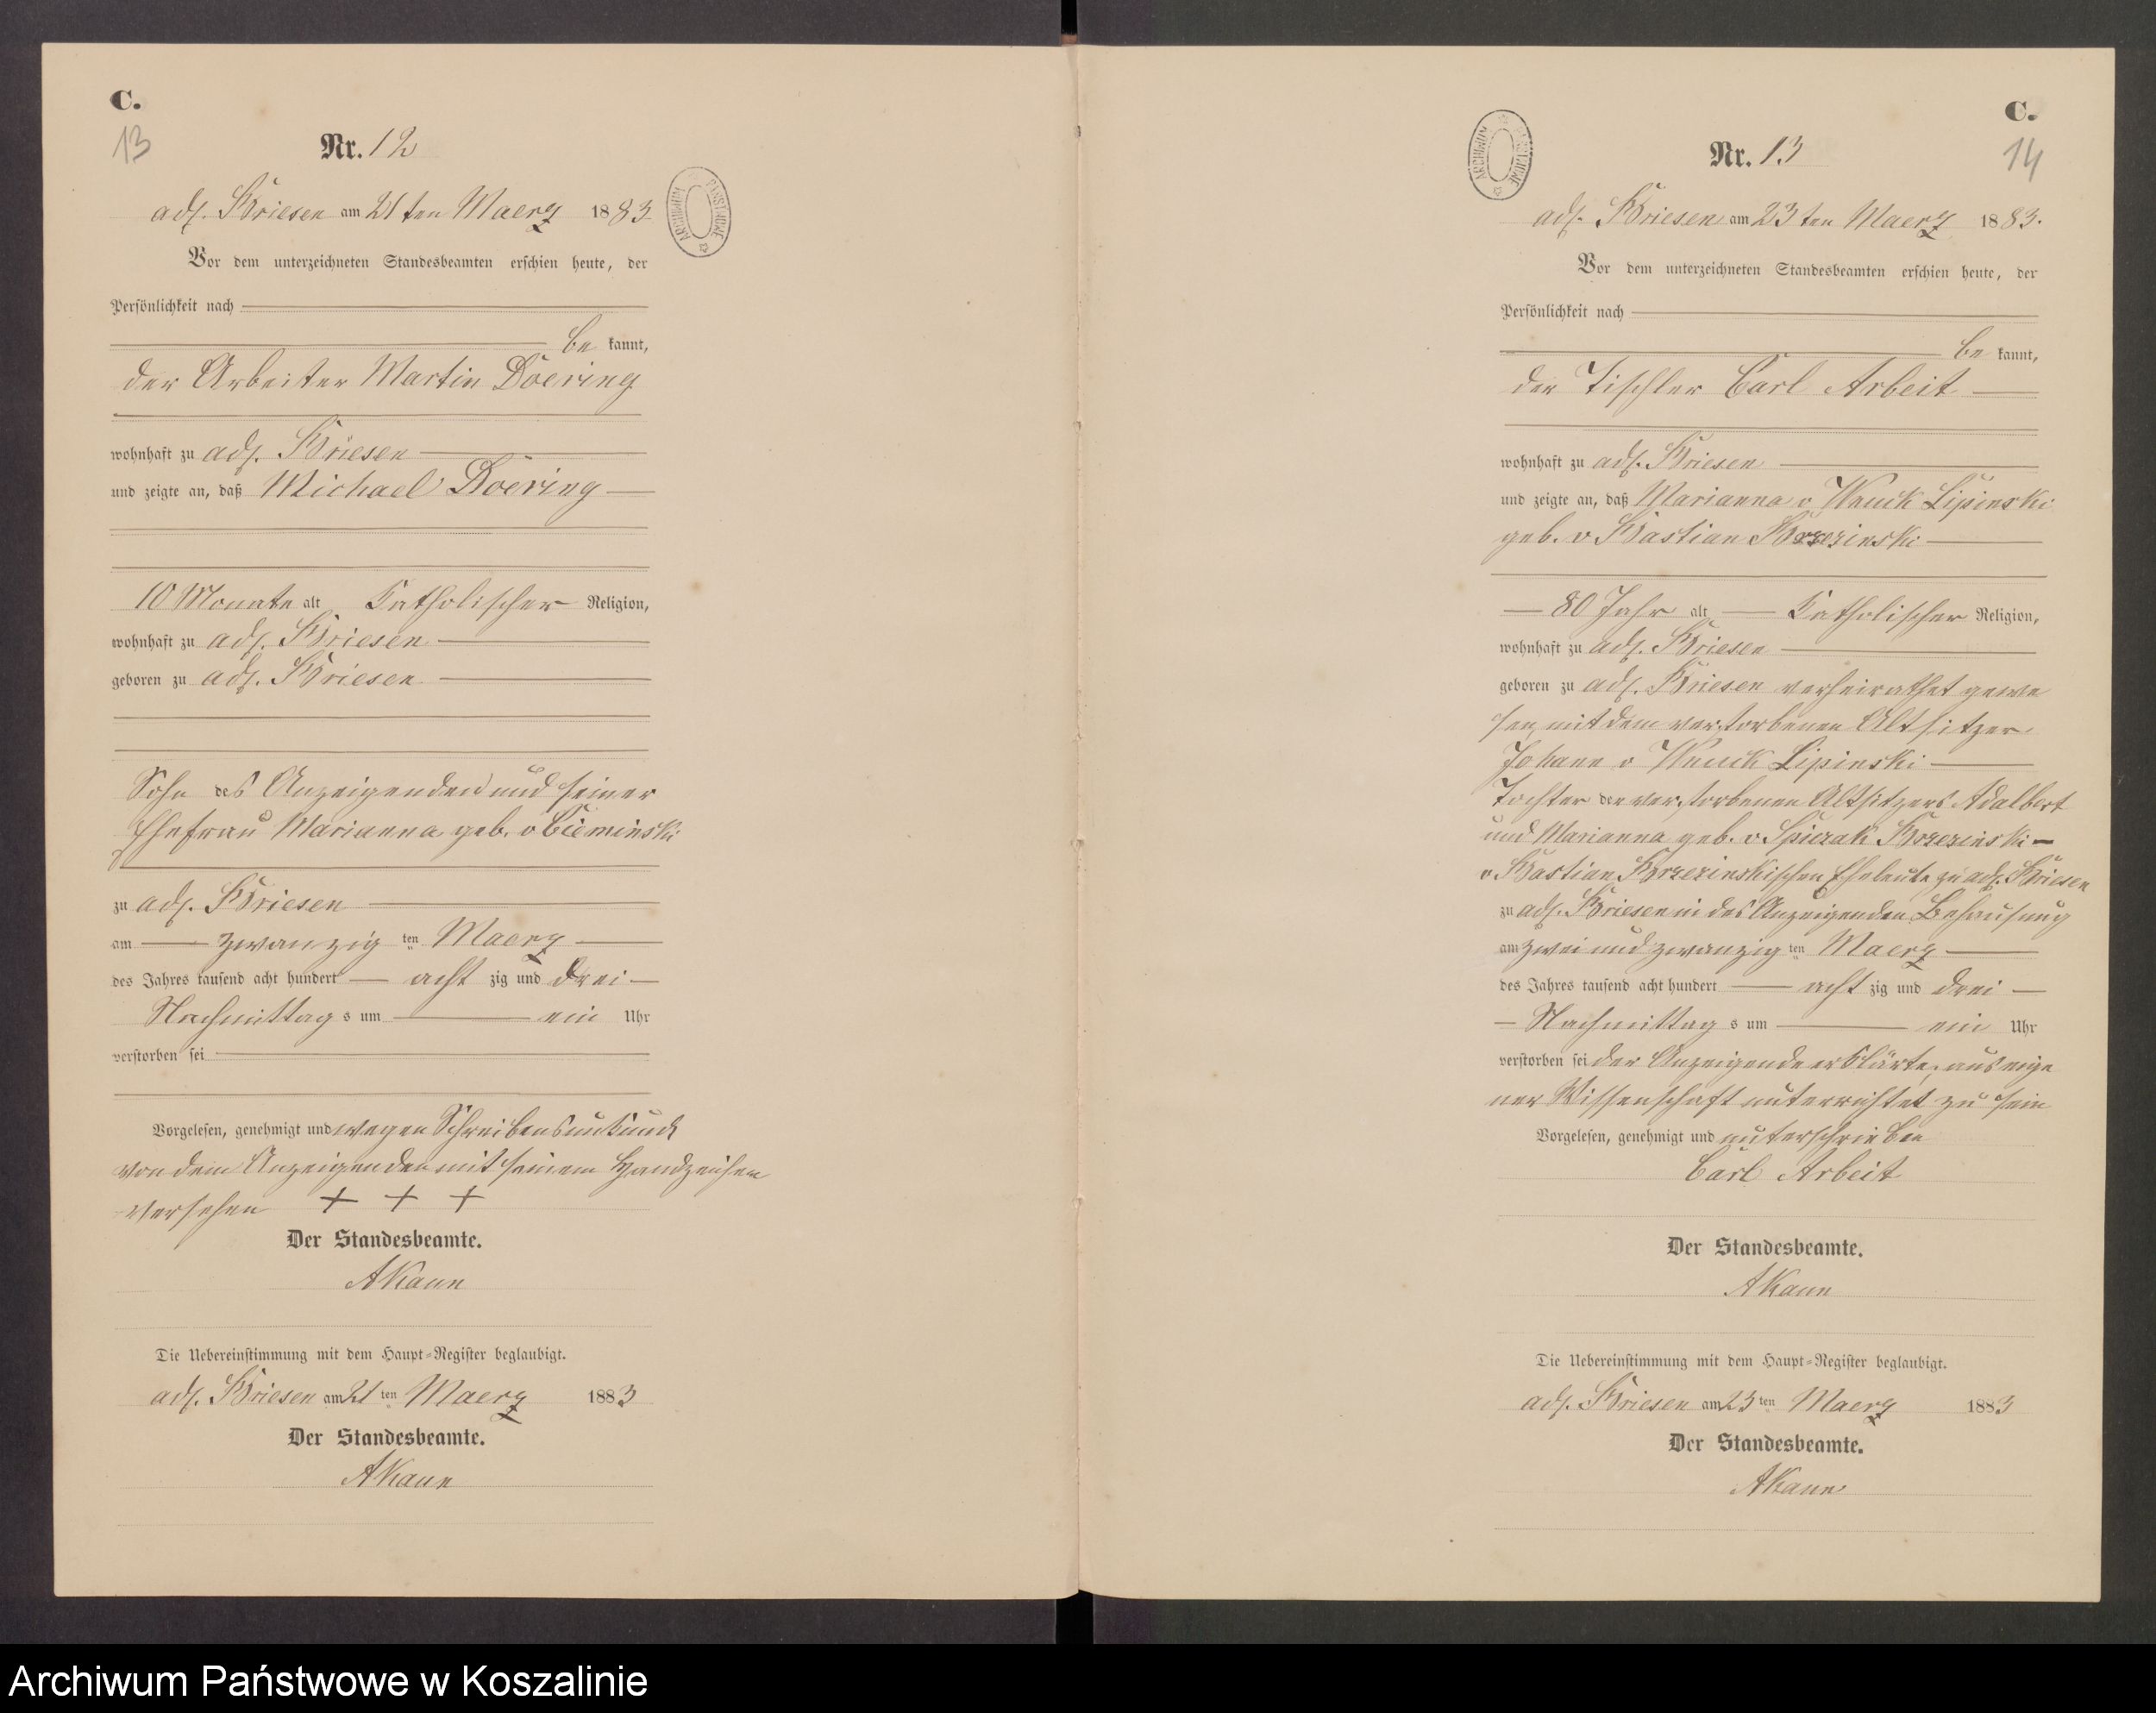 C.
13
Nr. 12
adl. Briesen am 21ten Maerz 1883
ARCHIWUM PAŃSTWOWE
Vor dem unterzeichneten Standesbeamten erschien heute, der
Persönlichkeit nach
be kannt,
der Arbeiter Martin Doering
wohnhaft zu adl. Briesen
und zeigte an, daß Michael Doering
10 Monate alt Katholischer Religion,
wohnhaft zu adl. Briesen
geboren zu adl. Briesen
Sohn des Anzeigenden und seiner
Ehefrau Marianna geb. v Cieminski
zu adl. Briesen
am zwanzig ten Maerz
des Jahres tausend acht hundert acht zig und drei
Nachmittag s um ein Uhr
verstorben sei
Vorgelesen, genehmigt und wegen Schreibensunkunde
von dem Anzeigenden mit seinem Handzeichen
versehen + + +
Der Standesbeamte.
A Kaun
Die Uebereinstimmung mit dem Haupt-Register beglaubigt.
adl. Briesen am 21 ten Maerz 1883
Der Standesbeamte.
A Kaun
C.
14
Nr. 13
ARCHIWUM PAŃSTWOWE
adl. Briesen am 23 ten Maerz 1883.
Vor dem unterzeichneten Standesbeamten erschien heute, der
Persönlichkeit nach
be kannt,
der Tischler Carl Arbeit
wohnhaft zu adl. Briesen
und zeigte an, daß Marianna v Wnuck Lipinski
geb. v Bastian Brzezinski
80 Jahr alt Katholischer Religion,
wohnhaft zu adl. Briesen
geboren zu adl. Briesen verheirathet gewe
sen, mit dem verstorbenen Altsitzer
Johann v Wnuck Lipinski
Tochter der verstorbenen Altsitzers Adalbert
und Marianna geb. v Spiczak Brzezinski
v Bastian Brzezinskischen Eheleute zu adl. Briesen
zu adl. Briesen in des Anzeigenden Behausung
am zwei und zwanzig ten Maerz
des Jahres tausend acht hundert acht zig und drei
Nachmittag s um ein Uhr
verstorben sei der Anzeigende erklärte, aus eige
ner Wissenschaft unterrichtet zu sein
Vorgelesen, genehmigt und unterschrieben
Carl Arbeit
Der Standesbeamte.
A Kaun
Die Uebereinstimmung mit dem Haupt-Register beglaubigt.
adl. Briesen am 23 ten Maerz 1883
Der Standesbeamte.
A Kaun
Archiwum Państwowe w Koszalinie